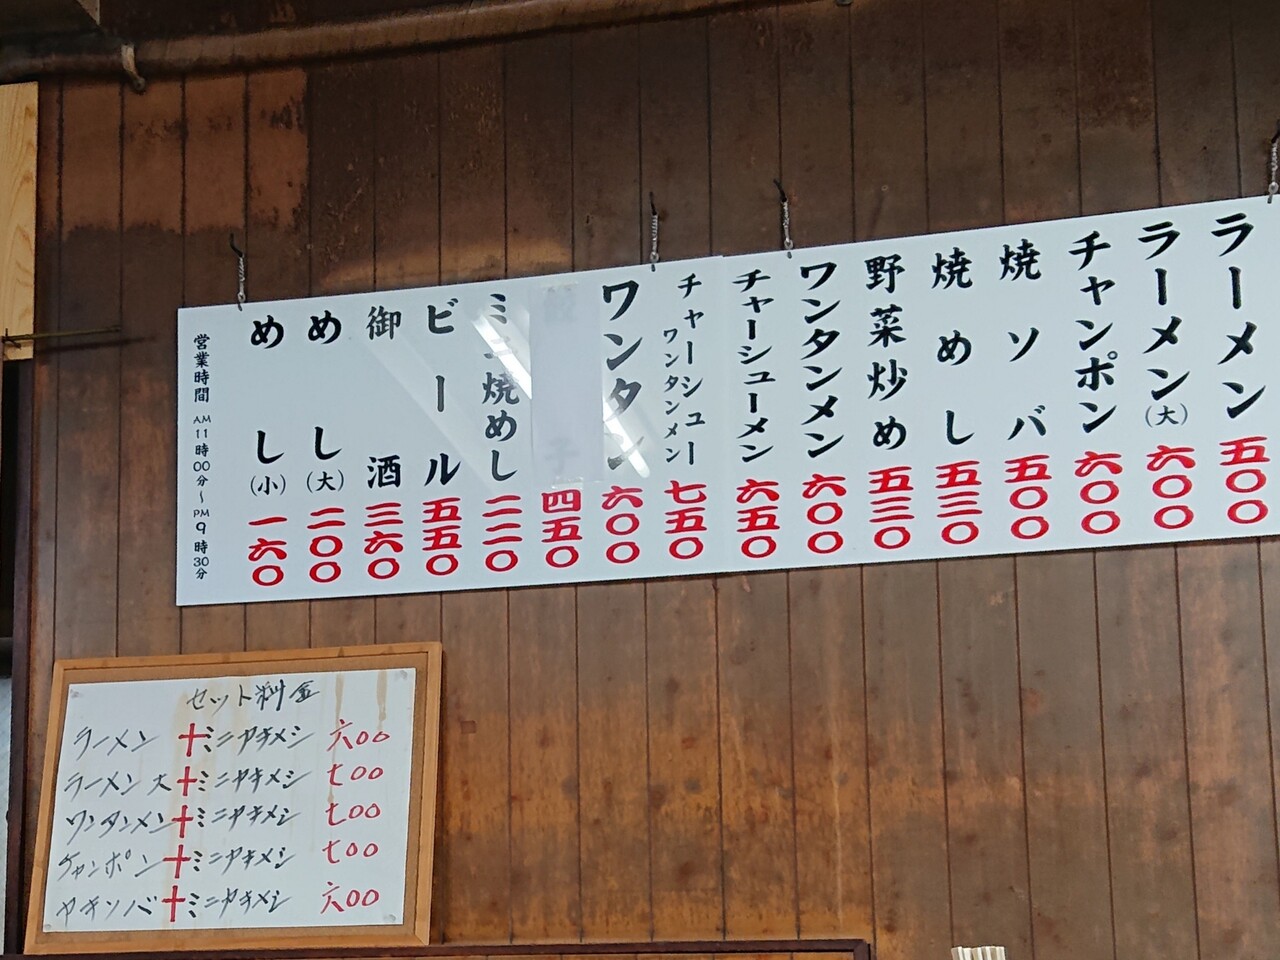 ラーメン 五〇〇
ラーメン(大) 六〇〇
チャンポン 六〇〇
焼ソバ 五〇〇
焼めし 五三〇
野菜炒め 五三〇
ワンタンメン 六〇〇
チャーシューメン 六五〇
チャーシューワンタンメン 七五〇
ワンタン 六〇〇
餃子 四五〇
ミニ焼めし 二二〇
ビール 五五〇
御酒 三六〇
めし(大) 二〇〇
めし(小) 一六〇
営業時間 AM11時00分〜PM9時30分
セット料金
ラーメン+ミニヤキメシ 六〇〇
ラーメン大+ミニヤキメシ 七〇〇
ワンタンメン+ミニヤキメシ 七〇〇
チャンポン+ミニヤキメシ 七〇〇
ヤキソバ+ミニヤキメシ 六〇〇